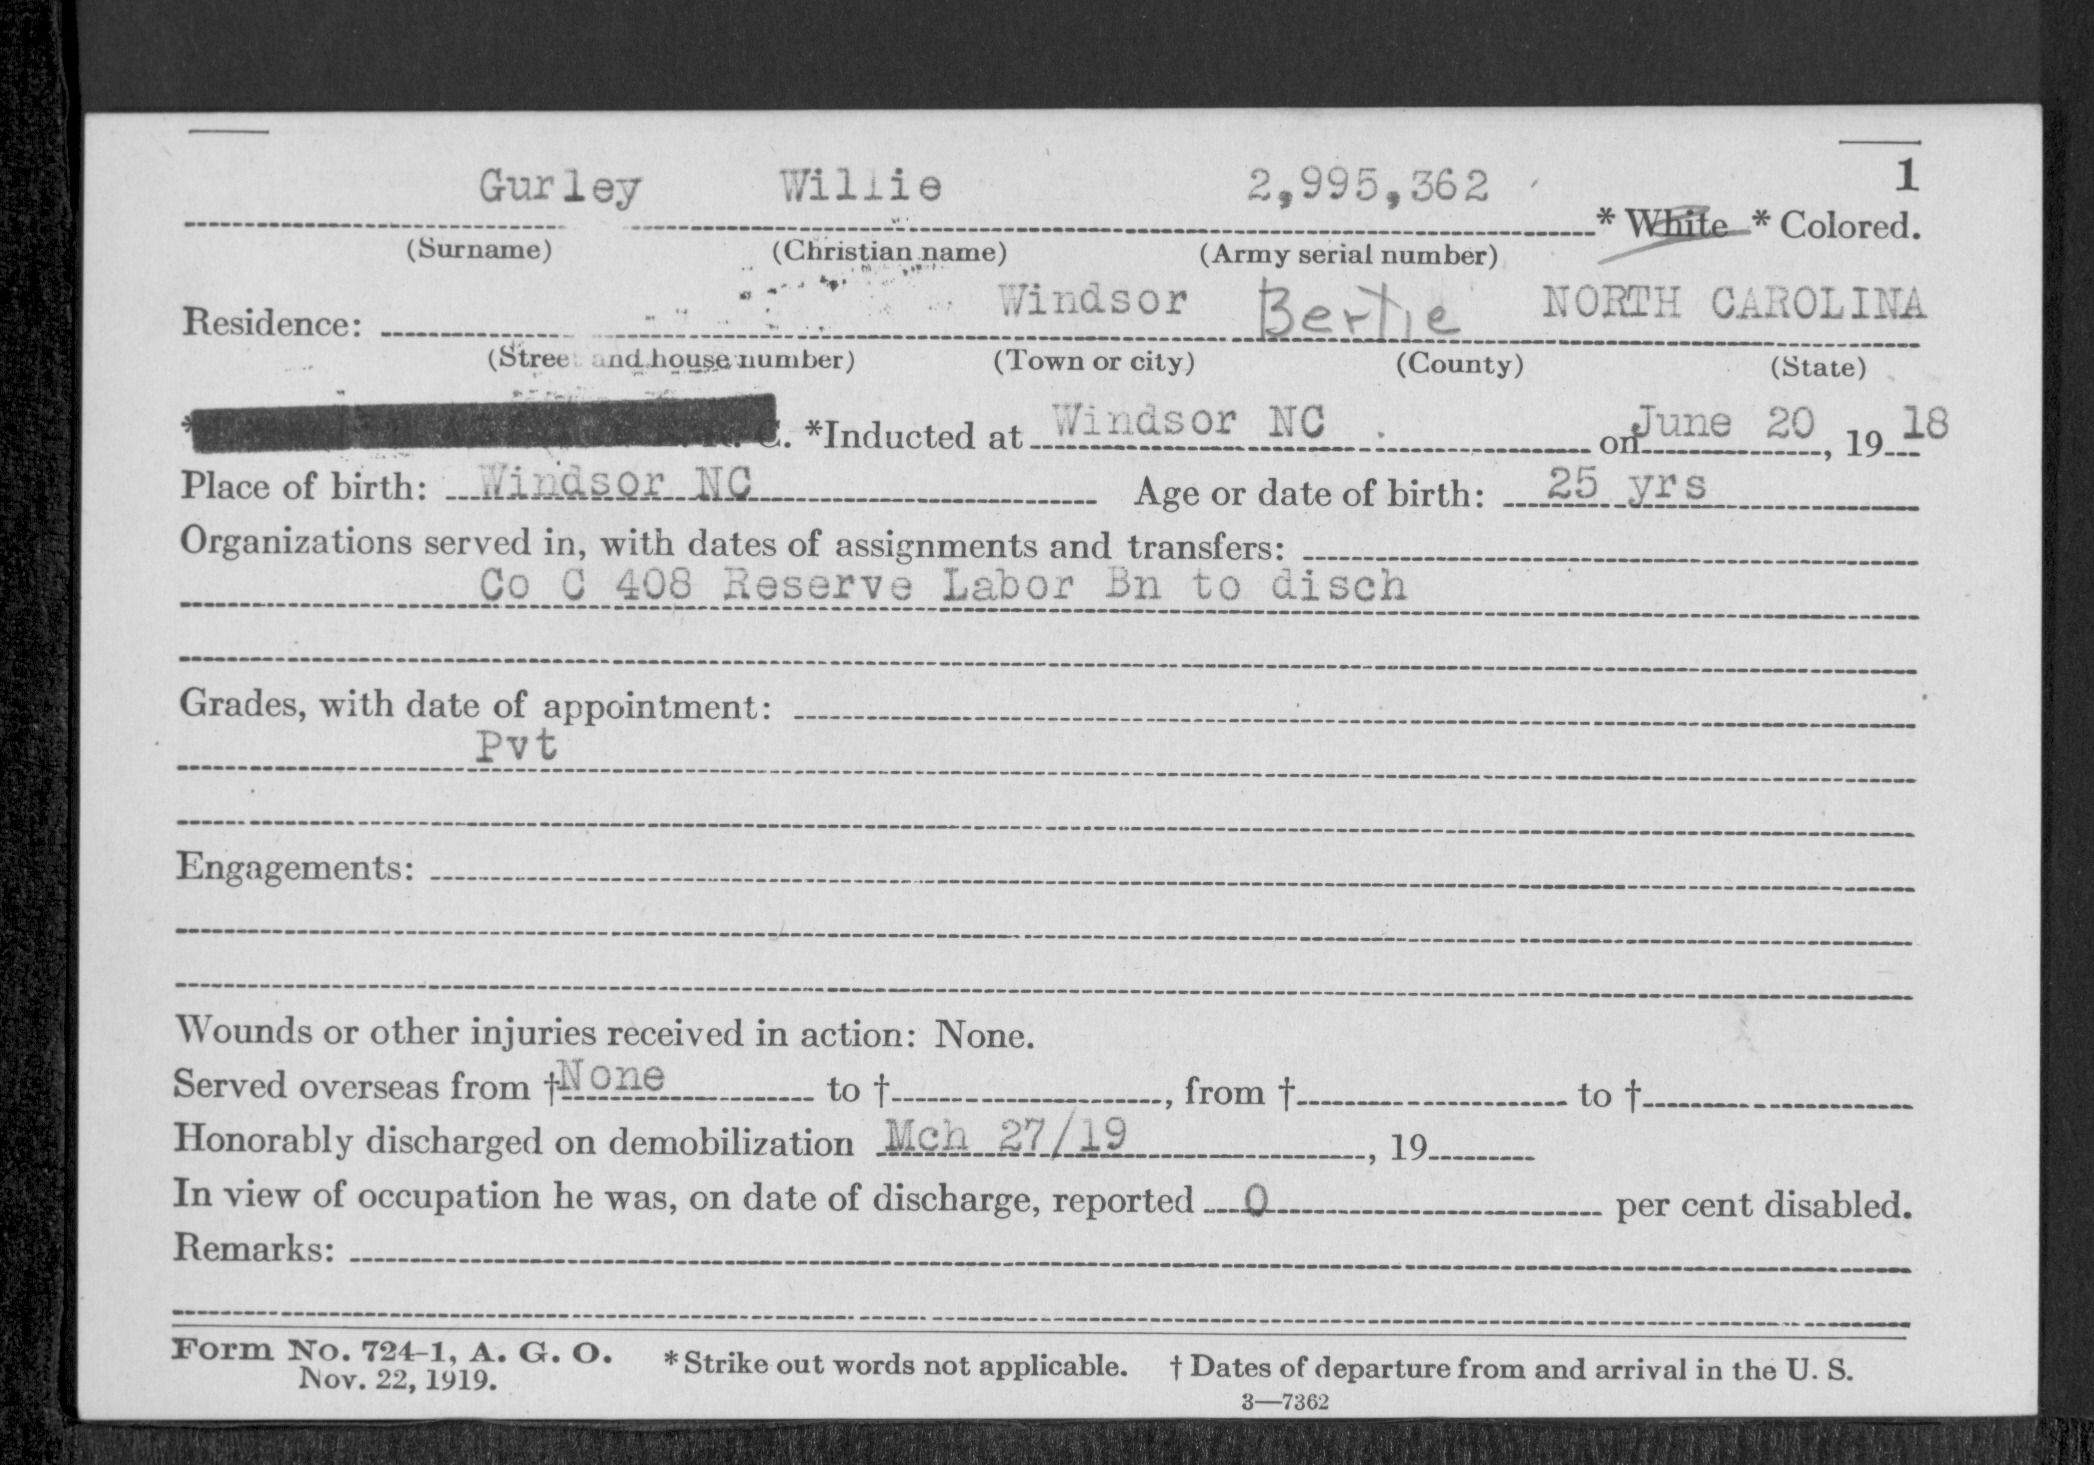 1
Gurley Willie 2,995,362 * White * Colored.
(Surname) (Christian name) (Army serial number)
Residence: Windsor Bertie NORTH CAROLINA
(Street and house number) (Town or city) (County) (State)
* R. C. *Inducted at Windsor NC on June 20, 19 18
Place of birth: Windsor NC Age or date of birth: 25 yrs
Organizations served in, with dates of assignments and transfers:
Co C 408 Reserve Labor Bn to disch
Grades, with date of appointment:
Pvt
Engagements:
Wounds or other injuries received in action: None.
Served overseas from † None to †, from † to †
Honorably discharged on demobilization Mch 27/19, 19
In view of occupation he was, on date of discharge, reported 0 per cent disabled.
Remarks:
Form No. 724-1, A. G. O. *Strike out words not applicable. † Dates of departure from and arrival in the U. S.
Nov. 22, 1919.
3—7362